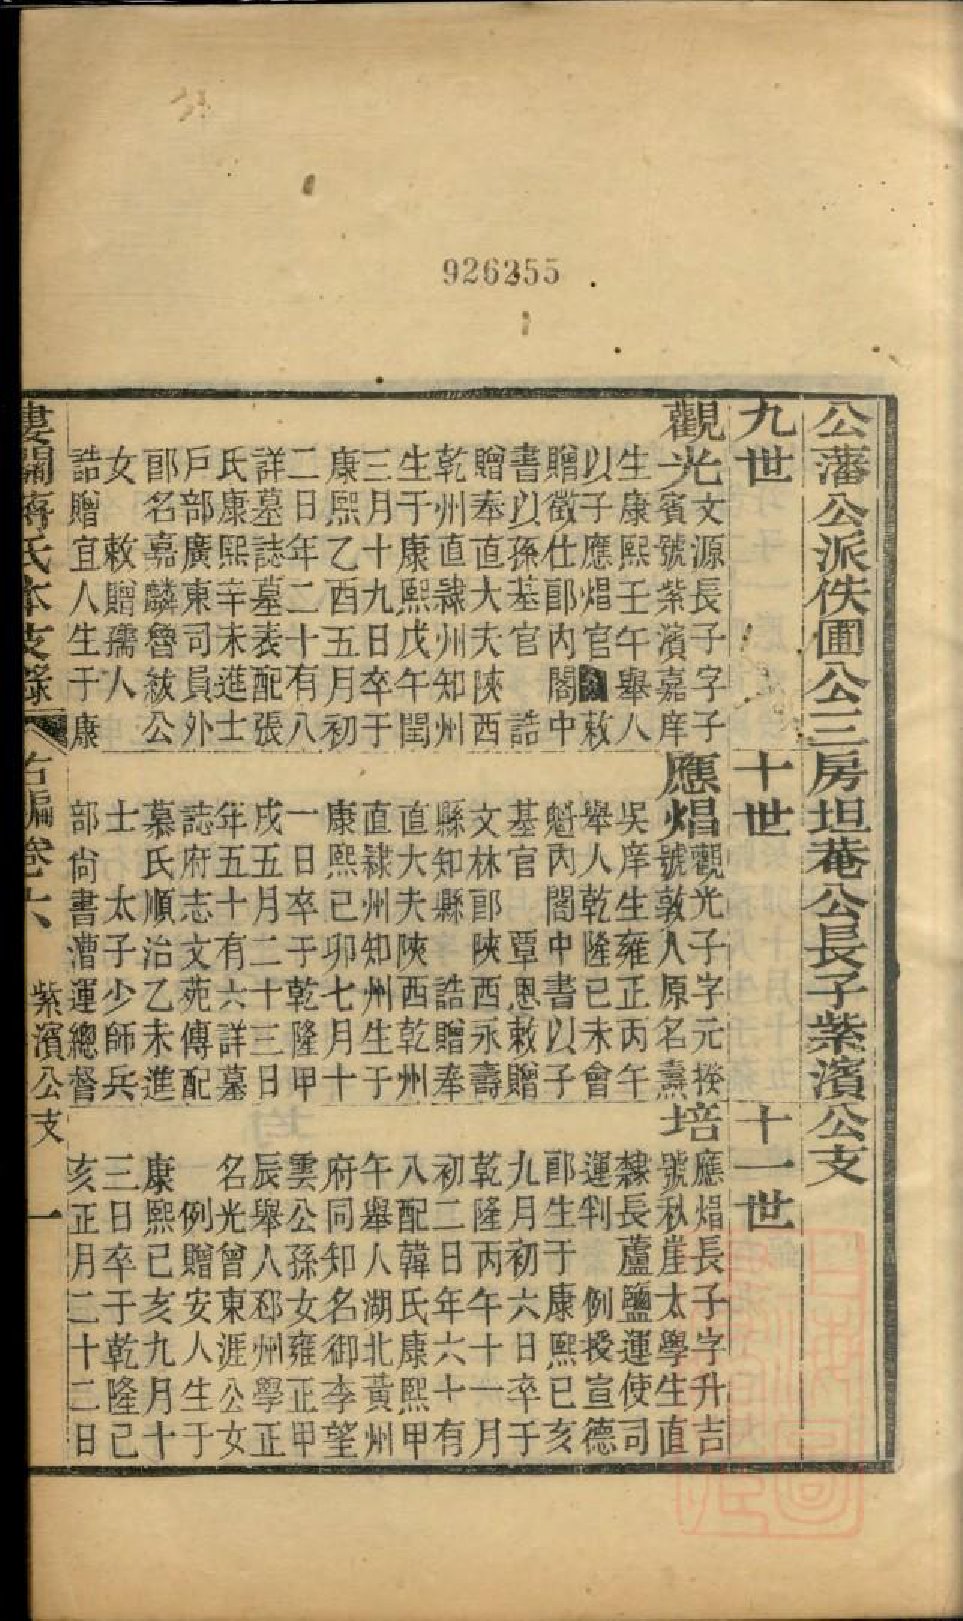 926255
公藩公派佚圃公三房坦菴公長子紫濱公支
九世
十世
十一世
觀光
文源長子字子
賓號紫濱嘉庠
生康熙壬午舉人
以子應焻官 敕
贈徵仕郎內閣中
書以孫基官 誥
贈奉直大夫陝西
乾州直隸州知州
生于康熙戊午閏
三月十九日卒于
康熙乙酉五月初
二日年二十有八
詳墓誌墓表配張
氏康熙辛未進士
戶部廣東司員外
郎名嘉麟魯紱公
女 敕贈孺人
誥贈宜人生于康
應焻
觀光子字元揆
號敦人原名燾
吳庠生雍正丙午
舉人乾隆己未會
魁內閣中書以子
基官 覃恩敕贈
文林郎陝西永壽
縣知縣 誥贈奉
直大夫陝西乾州
直隸州知州生于
康熙己卯七月十
一日卒于乾隆甲
戌五月二十三日
年五十有六詳墓
誌府志文苑傳配
慕氏順治乙未進
士 太子少師兵
部尚書漕運總督
培
應焻長子字升吉
號秋崖太學生直
隸長蘆鹽運使司
運判 例授宣德
郎生于康熙己亥
九月初六日卒于
乾隆丙午十一月
初二日年六十有
八配韓氏康熙甲
午舉人湖北黃州
府同知名御李望
雲公孫女雍正甲
辰舉人邳州學正
名光曾東涯公女
例贈安人生于
康熙己亥九月十
三日卒于乾隆己
亥正月二十二日
婁關蔣氏本支錄 右編卷六 紫濱公支 一